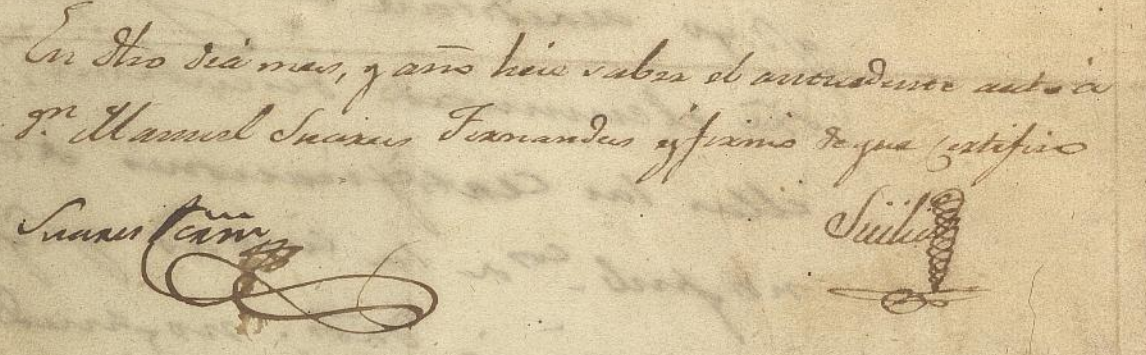 En dho dia mes, y año hice saber el antecedente auto á
Dn. Manuel Suares Fernandes y firmó de que certifico
Suares